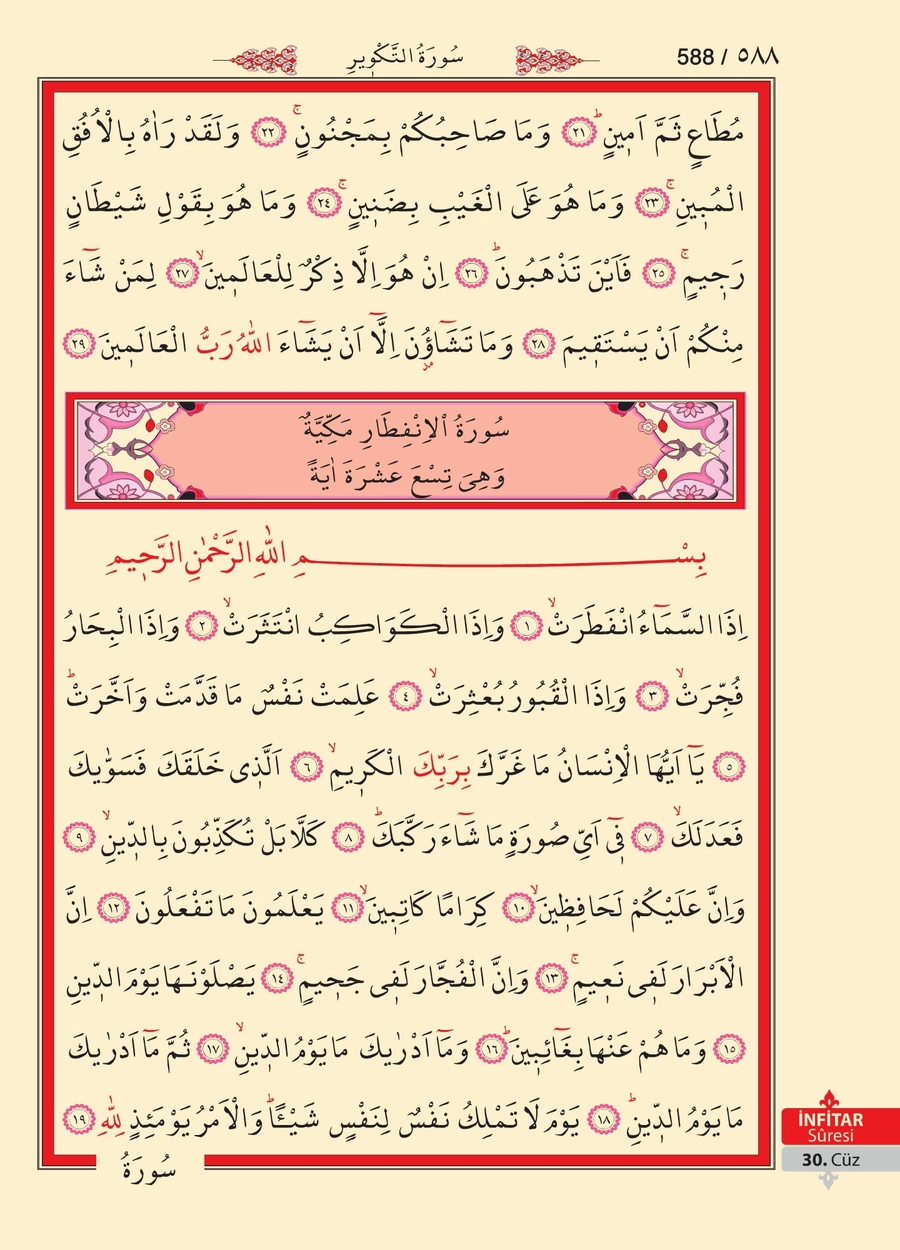 سُورَةُ التَّكْوِيرِ
588 / ٥٨٨
مُطَاعٍ ثَمَّ اَمٖينٍؕ ﴿٢١﴾ وَمَا صَاحِبُكُمْ بِمَجْنُونٍۚ ﴿٢٢﴾ وَلَقَدْ رَاٰهُ بِالْاُفُقِ
الْمُبٖينِۚ ﴿٢٣﴾ وَمَا هُوَ عَلَى الْغَيْبِ بِضَنٖينٍۚ ﴿٢٤﴾ وَمَا هُوَ بِقَوْلِ شَيْطَانٍ
رَجٖيمٍۚ ﴿٢٥﴾ فَاَيْنَ تَذْهَبُونَؕ ﴿٢٦﴾ اِنْ هُوَ اِلَّا ذِكْرٌ لِلْعَالَمٖينَۙ ﴿٢٧﴾ لِمَنْ شَٓاءَ
مِنْكُمْ اَنْ يَسْتَقٖيمَ ﴿٢٨﴾ وَمَا تَشَٓاؤُ۫نَ اِلَّٓا اَنْ يَشَٓاءَ اللّٰهُ رَبُّ الْعَالَمٖينَ ﴿٢٩﴾
سُورَةُ الْاِنْفِطَارِ مَكِّيَّةٌ
وَهِىَ تِسْعَ عَشْرَةَ اٰيَةً
بِسْمِ اللّٰهِ الرَّحْمٰنِ الرَّحٖيمِ
اِذَا السَّمَٓاءُ انْفَطَرَتْۙ ﴿١﴾ وَاِذَا الْكَوَاكِبُ انْتَثَرَتْۙ ﴿٢﴾ وَاِذَا الْبِحَارُ
فُجِّرَتْۙ ﴿٣﴾ وَاِذَا الْقُبُورُ بُعْثِرَتْۙ ﴿٤﴾ عَلِمَتْ نَفْسٌ مَا قَدَّمَتْ وَاَخَّرَتْؕ
﴿٥﴾ يَٓا اَيُّهَا الْاِنْسَانُ مَا غَرَّكَ بِرَبِّكَ الْكَرٖيمِۙ ﴿٦﴾ اَلَّذٖى خَلَقَكَ فَسَوّٰيكَ
فَعَدَلَكَۙ ﴿٧﴾ فٖٓى اَىِّ صُورَةٍ مَا شَٓاءَ رَكَّبَكَؕ ﴿٨﴾ كَلَّا بَلْ تُكَذِّبُونَ بِالدّٖينِۙ ﴿٩﴾
وَاِنَّ عَلَيْكُمْ لَحَافِظٖينَۙ ﴿١٠﴾ كِرَامًا كَاتِبٖينَۙ ﴿١١﴾ يَعْلَمُونَ مَا تَفْعَلُونَ ﴿١٢﴾ اِنَّ
الْاَبْرَارَ لَفٖى نَعٖيمٍۚ ﴿١٣﴾ وَاِنَّ الْفُجَّارَ لَفٖى جَحٖيمٍۚ ﴿١٤﴾ يَصْلَوْنَهَا يَوْمَ الدّٖينِ
﴿١٥﴾ وَمَا هُمْ عَنْهَا بِغَٓائِبٖينَؕ ﴿١٦﴾ وَمَٓا اَدْرٰيكَ مَا يَوْمُ الدّٖينِۙ ﴿١٧﴾ ثُمَّ مَٓا اَدْرٰيكَ
مَا يَوْمُ الدّٖينِؕ ﴿١٨﴾ يَوْمَ لَا تَمْلِكُ نَفْسٌ لِنَفْسٍ شَيْـًٔاؕ وَالْاَمْرُ يَوْمَئِذٍ لِلّٰهِ ﴿١٩﴾
سُورَةُ
İNFİTAR
Sûresi
30. Cüz